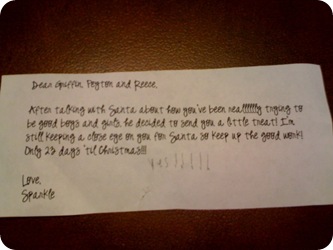 Dear Griffin, Peyton and Reece,
After talking with Santa about how you've been reallllllly trying to
be good boys and girls, he decided to send you a little treat! I'm
still keeping a close eye on you for Santa so keep up the good work!
Only 23 days 'til Christmas!!!
Yes!!!!!!
Love,
Sparkle